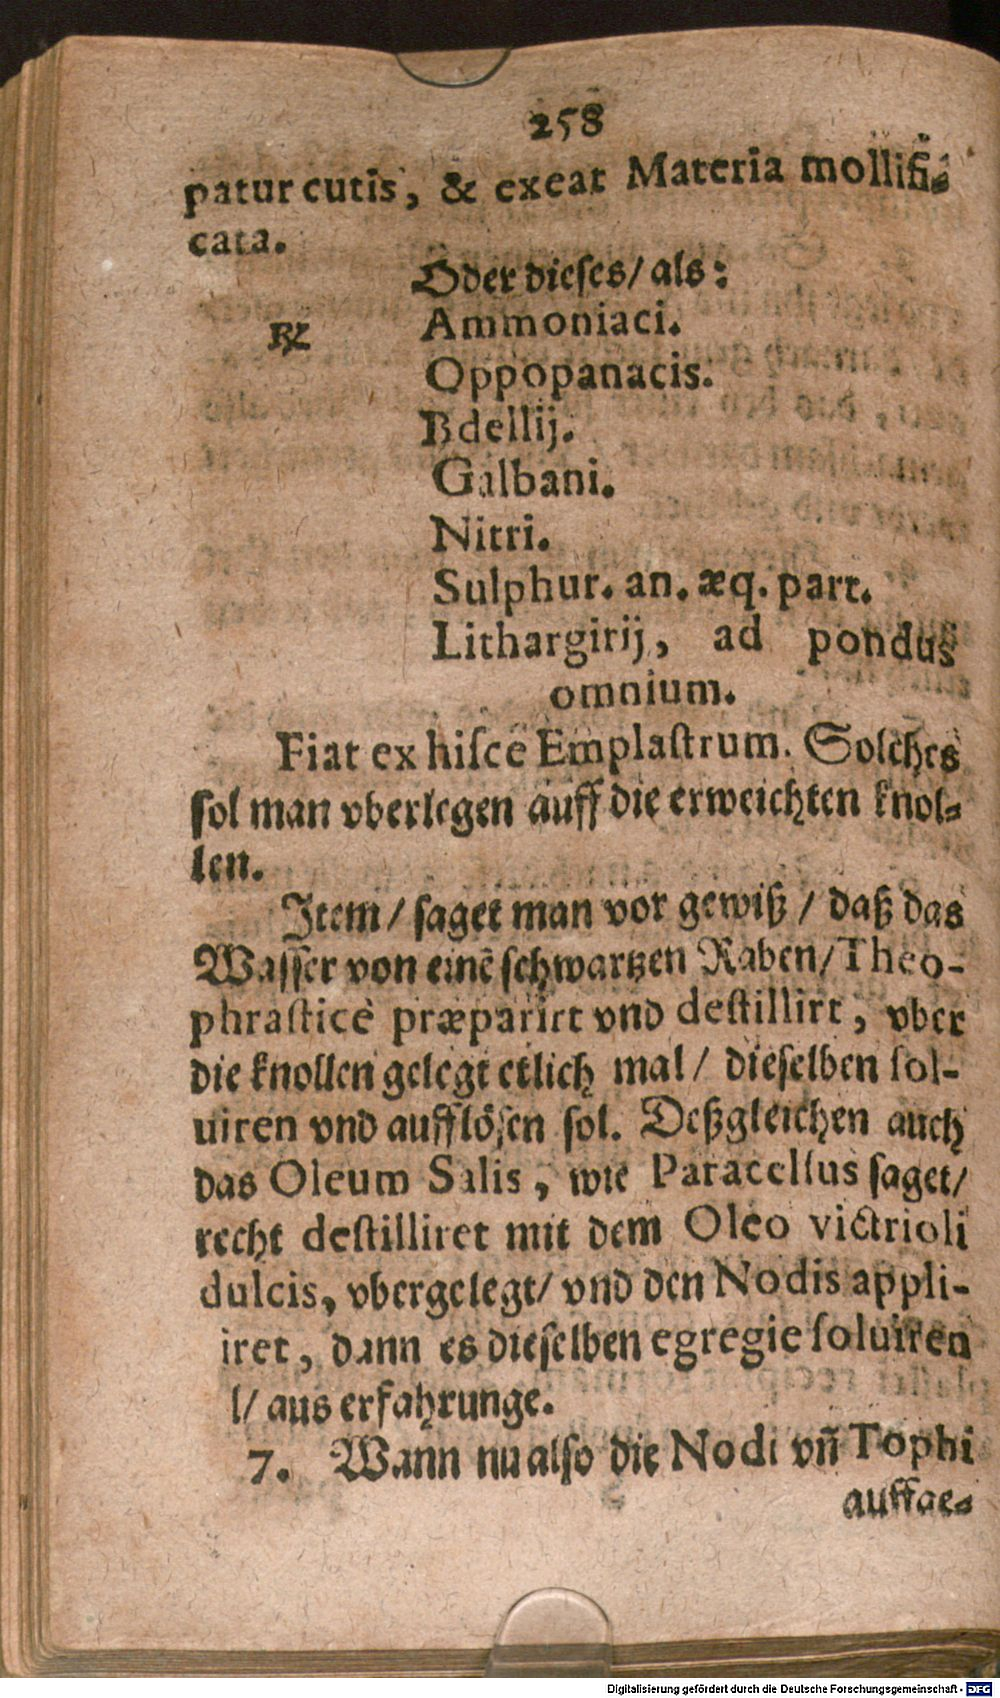 258
patur cutis, & exeat Materia mollifi-
cata.
Oder dieses/ als:
℞ Ammoniaci.
Oppopanacis.
Bdellij.
Galbani.
Nitri.
Sulphur. an. æq. part.
Lithargirij, ad pondus
omnium.
Fiat ex hisce Emplastrum. Solches
sol man vberlegen auff die erweichten knol-
len.
Item/ saget man vor gewiß/ daß das
Wasser von einē schwartzen Raben/ Theo-
phrasticè præparirt vnd destillirt, vber
die knollen gelegt etlich mal/ dieselben sol-
uiren vnd aufflösen sol. Deßgleichen auch
das Oleum Salis, wie Paracelsus saget/
recht destilliret mit dem Oleo victrioli
dulcis, vbergelegt/ vnd den Nodis appli-
iret, dann es dieselben egregie soluiren
l/ aus erfahrunge.
7. Wann nu also die Nodi vñ Tophi
auffge-
Digitalisierung gefördert durch die Deutsche Forschungsgemeinschaft - DFG